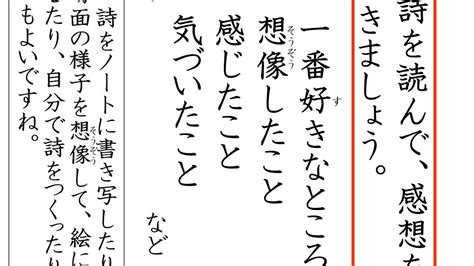 詩を読んで、感想を
きましょう。
一番好きなところ
想像したこと
感じたこと
気づいたこと
など
詩をノートに書き写したり
面の様子を想像して、絵に
たり、自分で詩をつくったり
もよいですね。